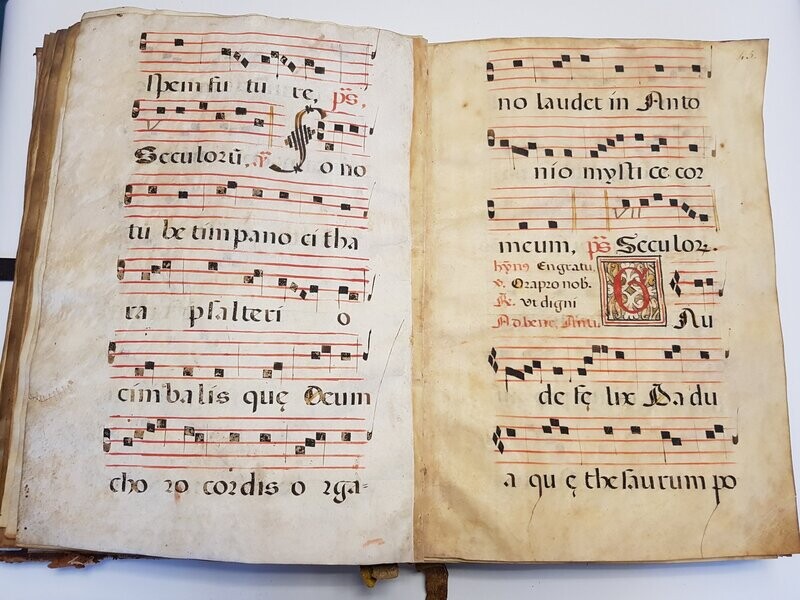 spem fu tu re, ps,
Seculorū, ꝟ. So no
tu be timpano ci tha
ra psalteri o
cimbalis quę Deum
cho ro cordis o rga=
45
no laudet in Anto
nio mysti ce cor
meum, ps Seculor.
hȳm9 En gratu.
v. Ora pro nob.
R. Vt digni
Ad bene. Anti. G Au
de fę lix Padu
a qu ę thesaurum po